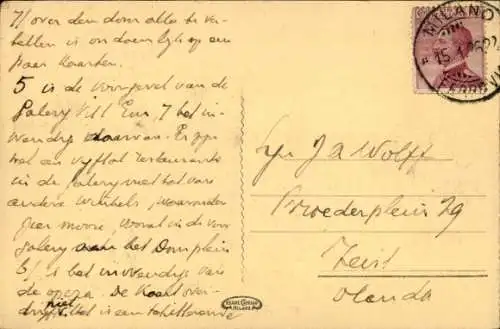 7/ over den dom alles te ver-
tellen is ondoenlijk op een
paar kaarten.
5 is de voorgevel van de
Galery Vitt Em, 7 het in-
wendig daarvan. Er zijn
wel een vijftal restaurants
in de Galery met tal van
andere winkels, waaronder
zeer mooie, vooral in de voor
galery aan het Domplein
3/ is het inwendige van
de opera. De Kaart over-
drijft niet, het is een schitterende
MILANO
15.1.26
J A Wolff
Broederplein 29
Zeist
Olanda
MILANO